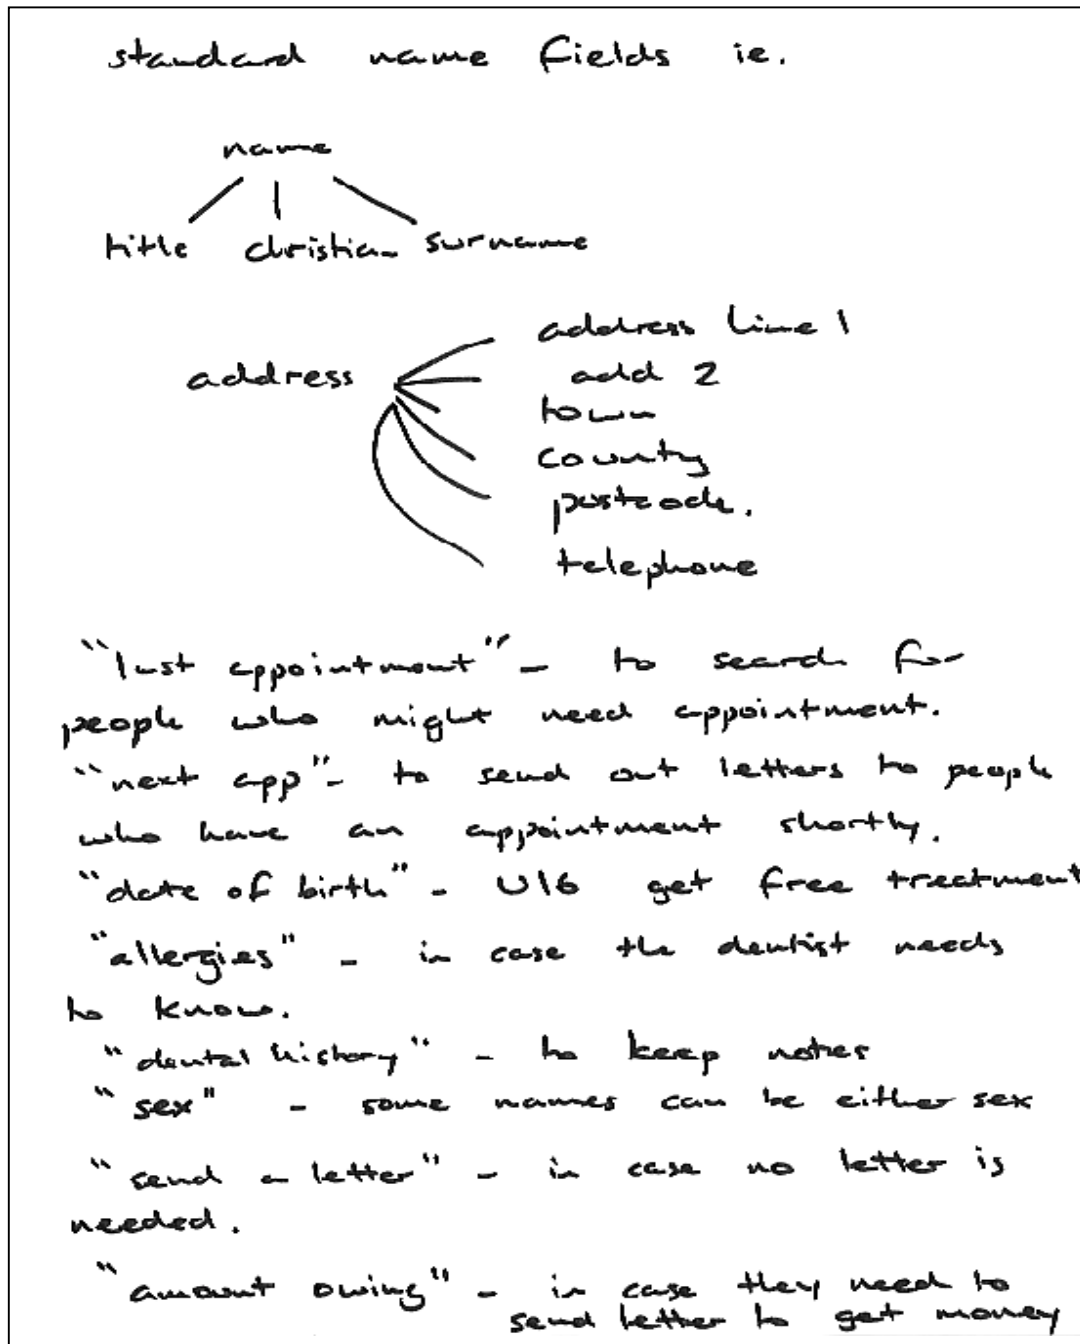 standard name fields ie.
name
title christian surname
address line 1
address
add 2
town
county
postcode.
telephone
"last appointment" - to search for
people who might need appointment.
"next app" - to send out letters to people
who have an appointment shortly.
"date of birth" - U16 get free treatment
"allergies" - in case the dentist needs
to know.
"dental history" - to keep notes
"sex" - some names can be either sex
"send a letter" - in case no letter is
needed.
"amount owing" - in case they need to
send letter to get money